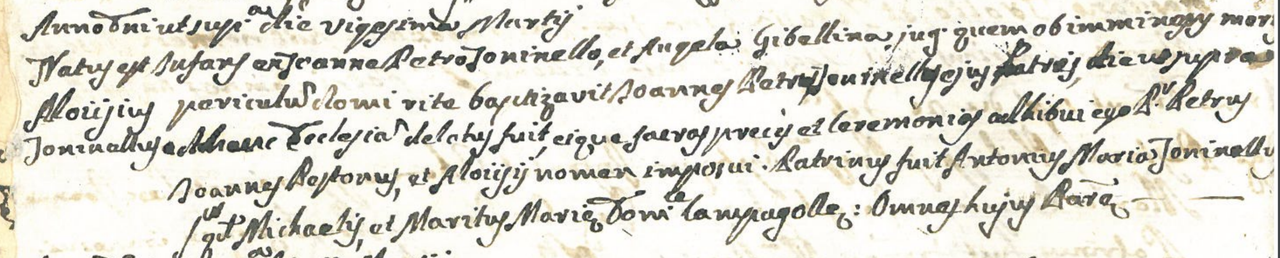 Anno Dni ut supra die vigesima Martij
Natus est Infans ex Joanne Petro Joninello, et Angela Gibellina jug. quem ob imminens mor
Aloijsius periculu domi rite baptizavit Joannes Petrus Joninellus ejus Patris, die ut supra
Joninellus ad hanc Ecclesia delatus fuit, eique sacras preces et ceremonias adhibui ego Pr. Petrus
Joannes Restonus, et Aloijsij nomen imposui. Patrinus fuit Antonius Maria Joninellus
qd Michaelis, et Maritus Mariæ Domce Campagolle: Omnes hujus Paræ